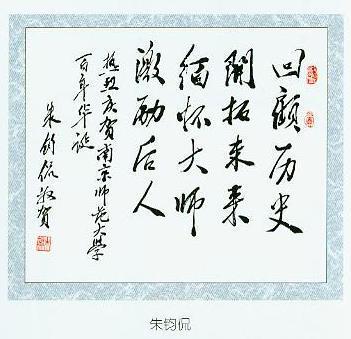 回顾历史
開拓未来
缅怀大师
激励后人
热烈庆贺南京师范大学
百年华诞
朱钧侃敬贺
朱钧侃